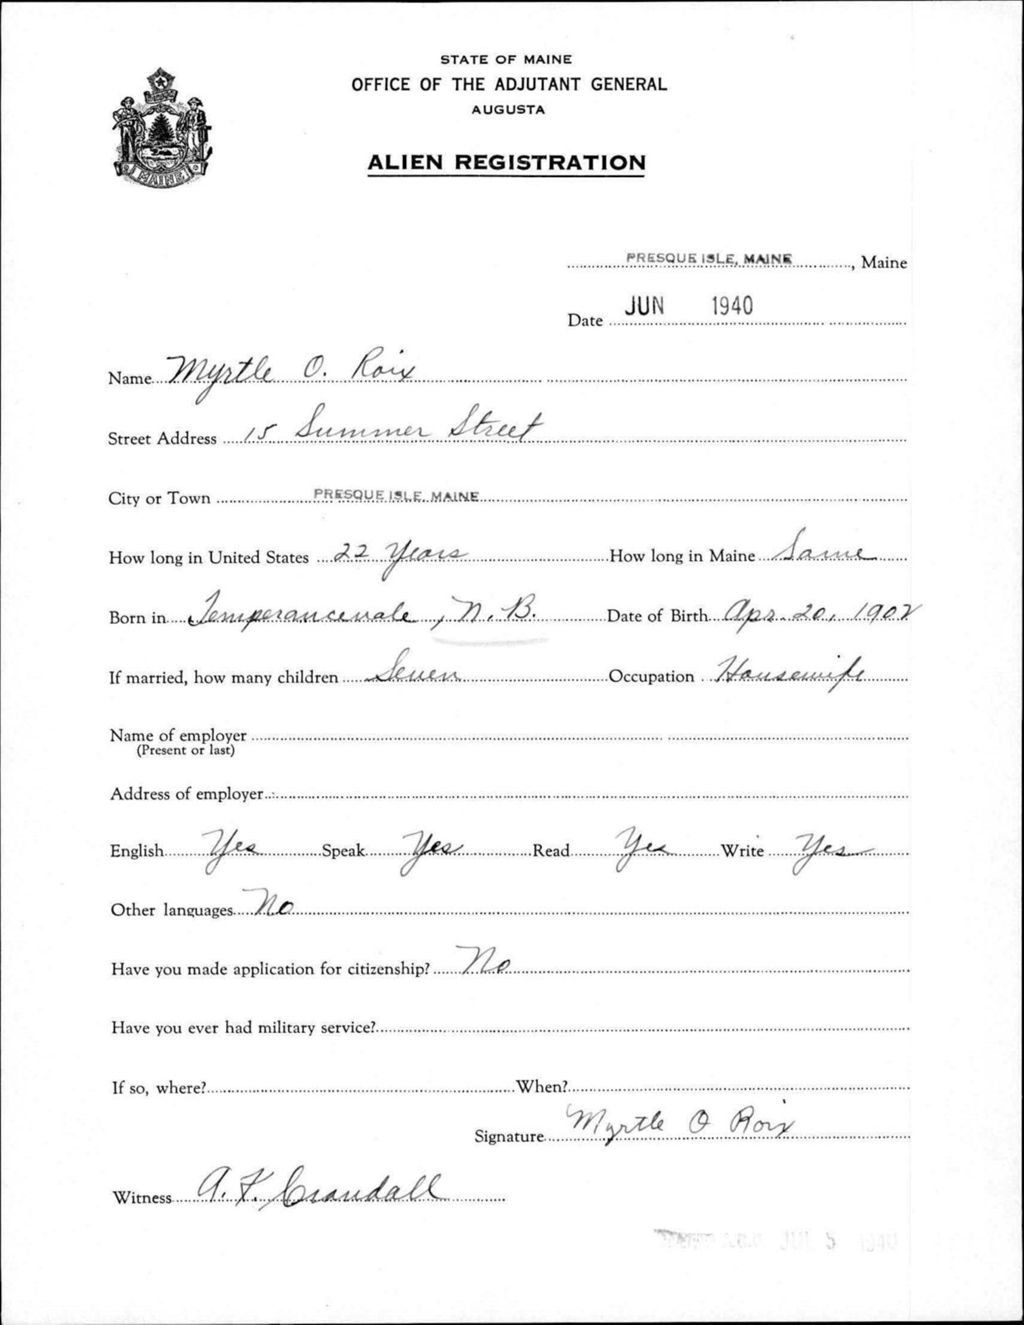 STATE OF MAINE
OFFICE OF THE ADJUTANT GENERAL
AUGUSTA
ALIEN REGISTRATION
MAINE
PRESQUE ISLE, MAINE, Maine
Date JUN 1940
Name Myrtle O. Roix
Street Address 15 Summer Street
City or Town PRESQUE ISLE, MAINE
How long in United States 22 Years How long in Maine Same
Born in Temperancevale, N.B. Date of Birth Apr. 20, 1902
If married, how many children Seven Occupation Housewife
Name of employer
(Present or last)
Address of employer
English Yes Speak Yes Read Yes Write Yes
Other languages No
Have you made application for citizenship? No
Have you ever had military service?
If so, where? When?
Signature Myrtle O Roix
Witness A. F. Crandall
A.G.O. JUL 5 1940